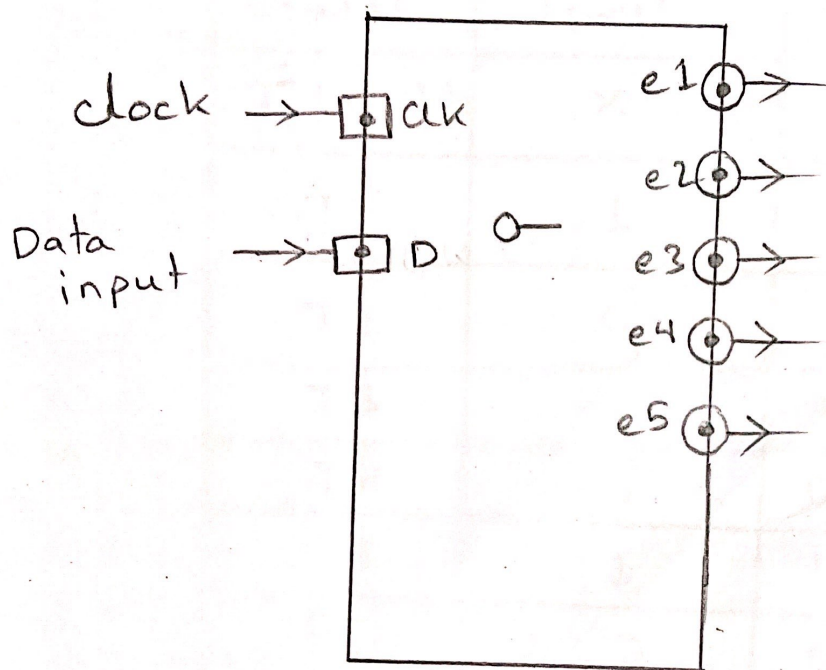 clock
clk
Data
input
D
e1
e2
e3
e4
e5